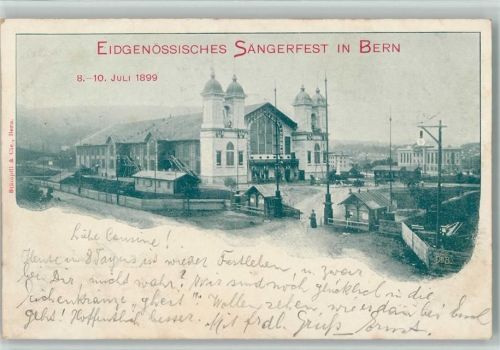 EIDGENÖSSISCHES SÄNGERFEST IN BERN
8.–10. JULI 1899
Stämpfli & Cie., Bern.
Liebe Cousine!
Heute in 8 Tagen ist wieder Festleben, u. zwar
bei Dir, nicht wahr? Wir sind noch glücklich in die
"ghert". Wollen sehen, wie es da bei Euch
geht! Hoffentlich besser. Mit frdl. Gruß Ernst.